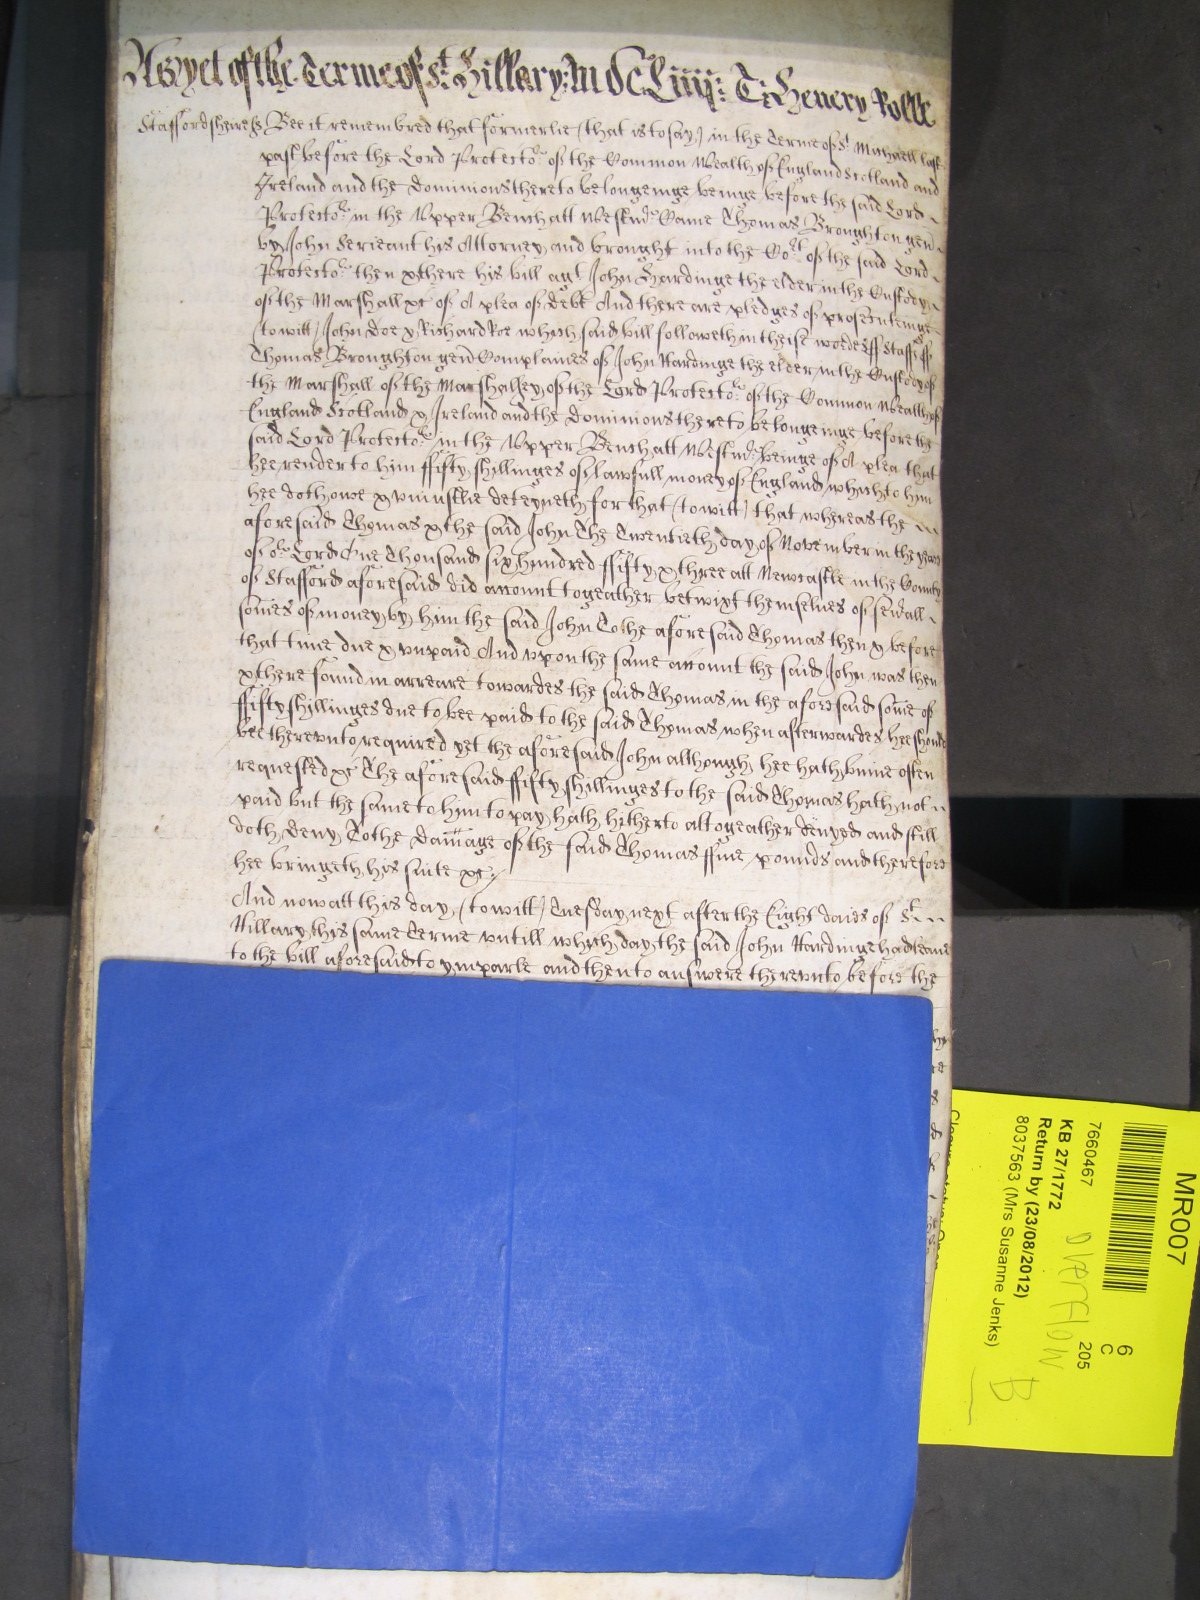 As yet of the Terme of St Hillary: MDCLiiij: T: Henery Rolle
Staffordsheire ss Bee it remembred that formerlie (that is to say) in the Terme of St Michaell last
past before the Lord Protector of the Common Wealth of England Scotland and
Ireland and the Dominions thereto belongeinge beinge before the said Lord
Protector in the Upper Bench att Westmr Came Thomas Broughton gent
by John Serieant his Attorney and brought into the Cort of the said Lord
Protector then & there his bill agt John Hardinge the elder in the Custody
of the Marshall &c of A plea of debt And there are pledges of prosecuteinge
(to witt) John Doe & Richard Roe which said bill followeth in theise wordes ss Staff ss
Thomas Broughton gent Complaines of John Hardinge the elder in the Custody of
the Marshall of the Marshalsey of the Lord Protector of the Common Wealth of
England Scotland & Ireland and the Dominions thereto belongeinge before the
said Lord Protector in the Upper Bench att Westmr beinge of A plea that
hee render to him ffifty shillinges of lawfull money of England which to him
hee doth owe & uniustlie deteyneth for that (to witt) that whereas the
aforesaid Thomas & the said John The Twentieth day of November in the yeare
of or Lord One Thousand six hundred ffifty & three att Newcastle in the County
of Stafford aforesaid did account togeather betwixt themselves of sevall
somes of money by him the said John To the aforesaid Thomas then & before
that time due & unpaid And upon the same account the said John was then
& there found in arreare towardes the said Thomas in the aforesaid some of
ffifty shillinges due to bee paid to the said Thomas when afterwardes hee should
bee thereunto required yet the aforesaid John although hee hath binne often
requested &c The aforesaid ffifty shillinges to the said Thomas hath not
paid but the same to him to pay hath hitherto altogeather denyed and still
doth deny To the damage of the said Thomas ffive pounds and therefore
hee bringeth his suite &c
And now att this day (to witt) Tuesday next after the Eight daies of St
Hillary this same Terme untill which day the said John Hardinge had leave
to the bill aforesaid to ymparle and then to answere thereunto before the
MR007
6
C
205
7660467
OVERFLOW
KB 27/1772
B
Return by (23/08/2012)
8037563 (Mrs Susanne Jenks)